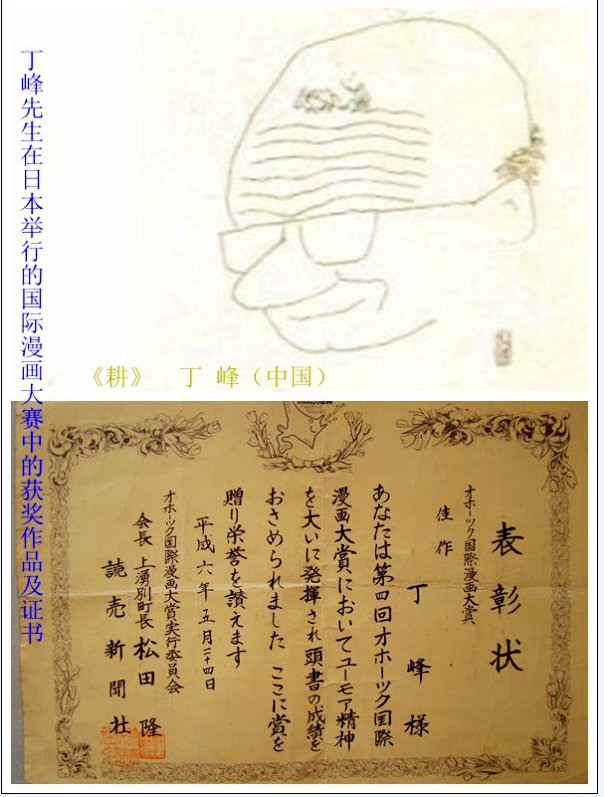 丁峰先生在日本举行的国际漫画大赛中的获奖作品及证书
《耕》 丁 峰（中国）
表彰状
オホーツク国際漫画大賞
佳作
丁 峰 様
あなたは第四回オホーツク国際
漫画大賞においてユーモア精神
を大いに発揮され頭書の成績を
おさめられました ここに賞を
贈り栄誉を讃えます
平成六年五月二十四日
オホーツク国際漫画大賞実行委員会
会長 上湧別町長 松田 隆
読売新聞社